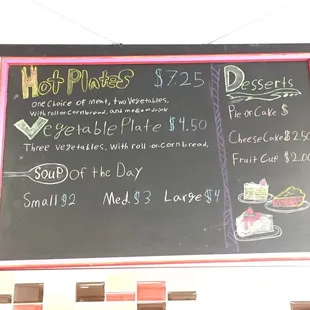 Hot Plates $7.25
One choice of meat, two vegetables,
with roll or cornbread, and medium drink
Vegetable Plate $4.50
Three vegetables, with roll or cornbread.
Soup of the Day
Small $2 Med. $3 Large $4
Desserts
Pie or Cake $
Cheese Cake $2.50
Fruit Cup $2.00